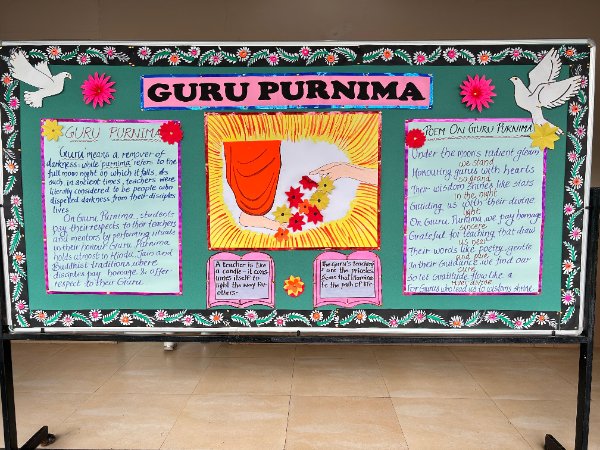 GURU PURNIMA
GURU PURNIMA
Guru means a remover of
darkness while purnima refers to the
full moon night on which it falls. As
such in ancient times, teachers were
literally considered to be people who
dispelled darkness from their disciples
lives
On Guru Purnima, students
pay their respects to their teachers
and mentors by performing rituals
in their honour. Guru Purnima
holds almost in Hindu, Jain and
Buddhist traditions where
disciples pay homage & offer
respect to their Guru.
A teacher is like
a candle - it
itself to
light the way for
others-
The Guru's teachings
are the
that illumine
to the path of life.
POEM ON GURU PURNIMA
Under the moon's radiant gleam
we stand
Honouring gurus with hearts
so grand
Their wisdom shines like stars
in the night
Guiding us with their divine
light
On Guru Purnima we pay homage
sincere
Grateful for teaching that draw
us near
Their words like poetry, gentle
and pure
In their Guidance we find our
cure
So let gratitude flow like a
divine
For Gurus who lead us to wisdoms shrine